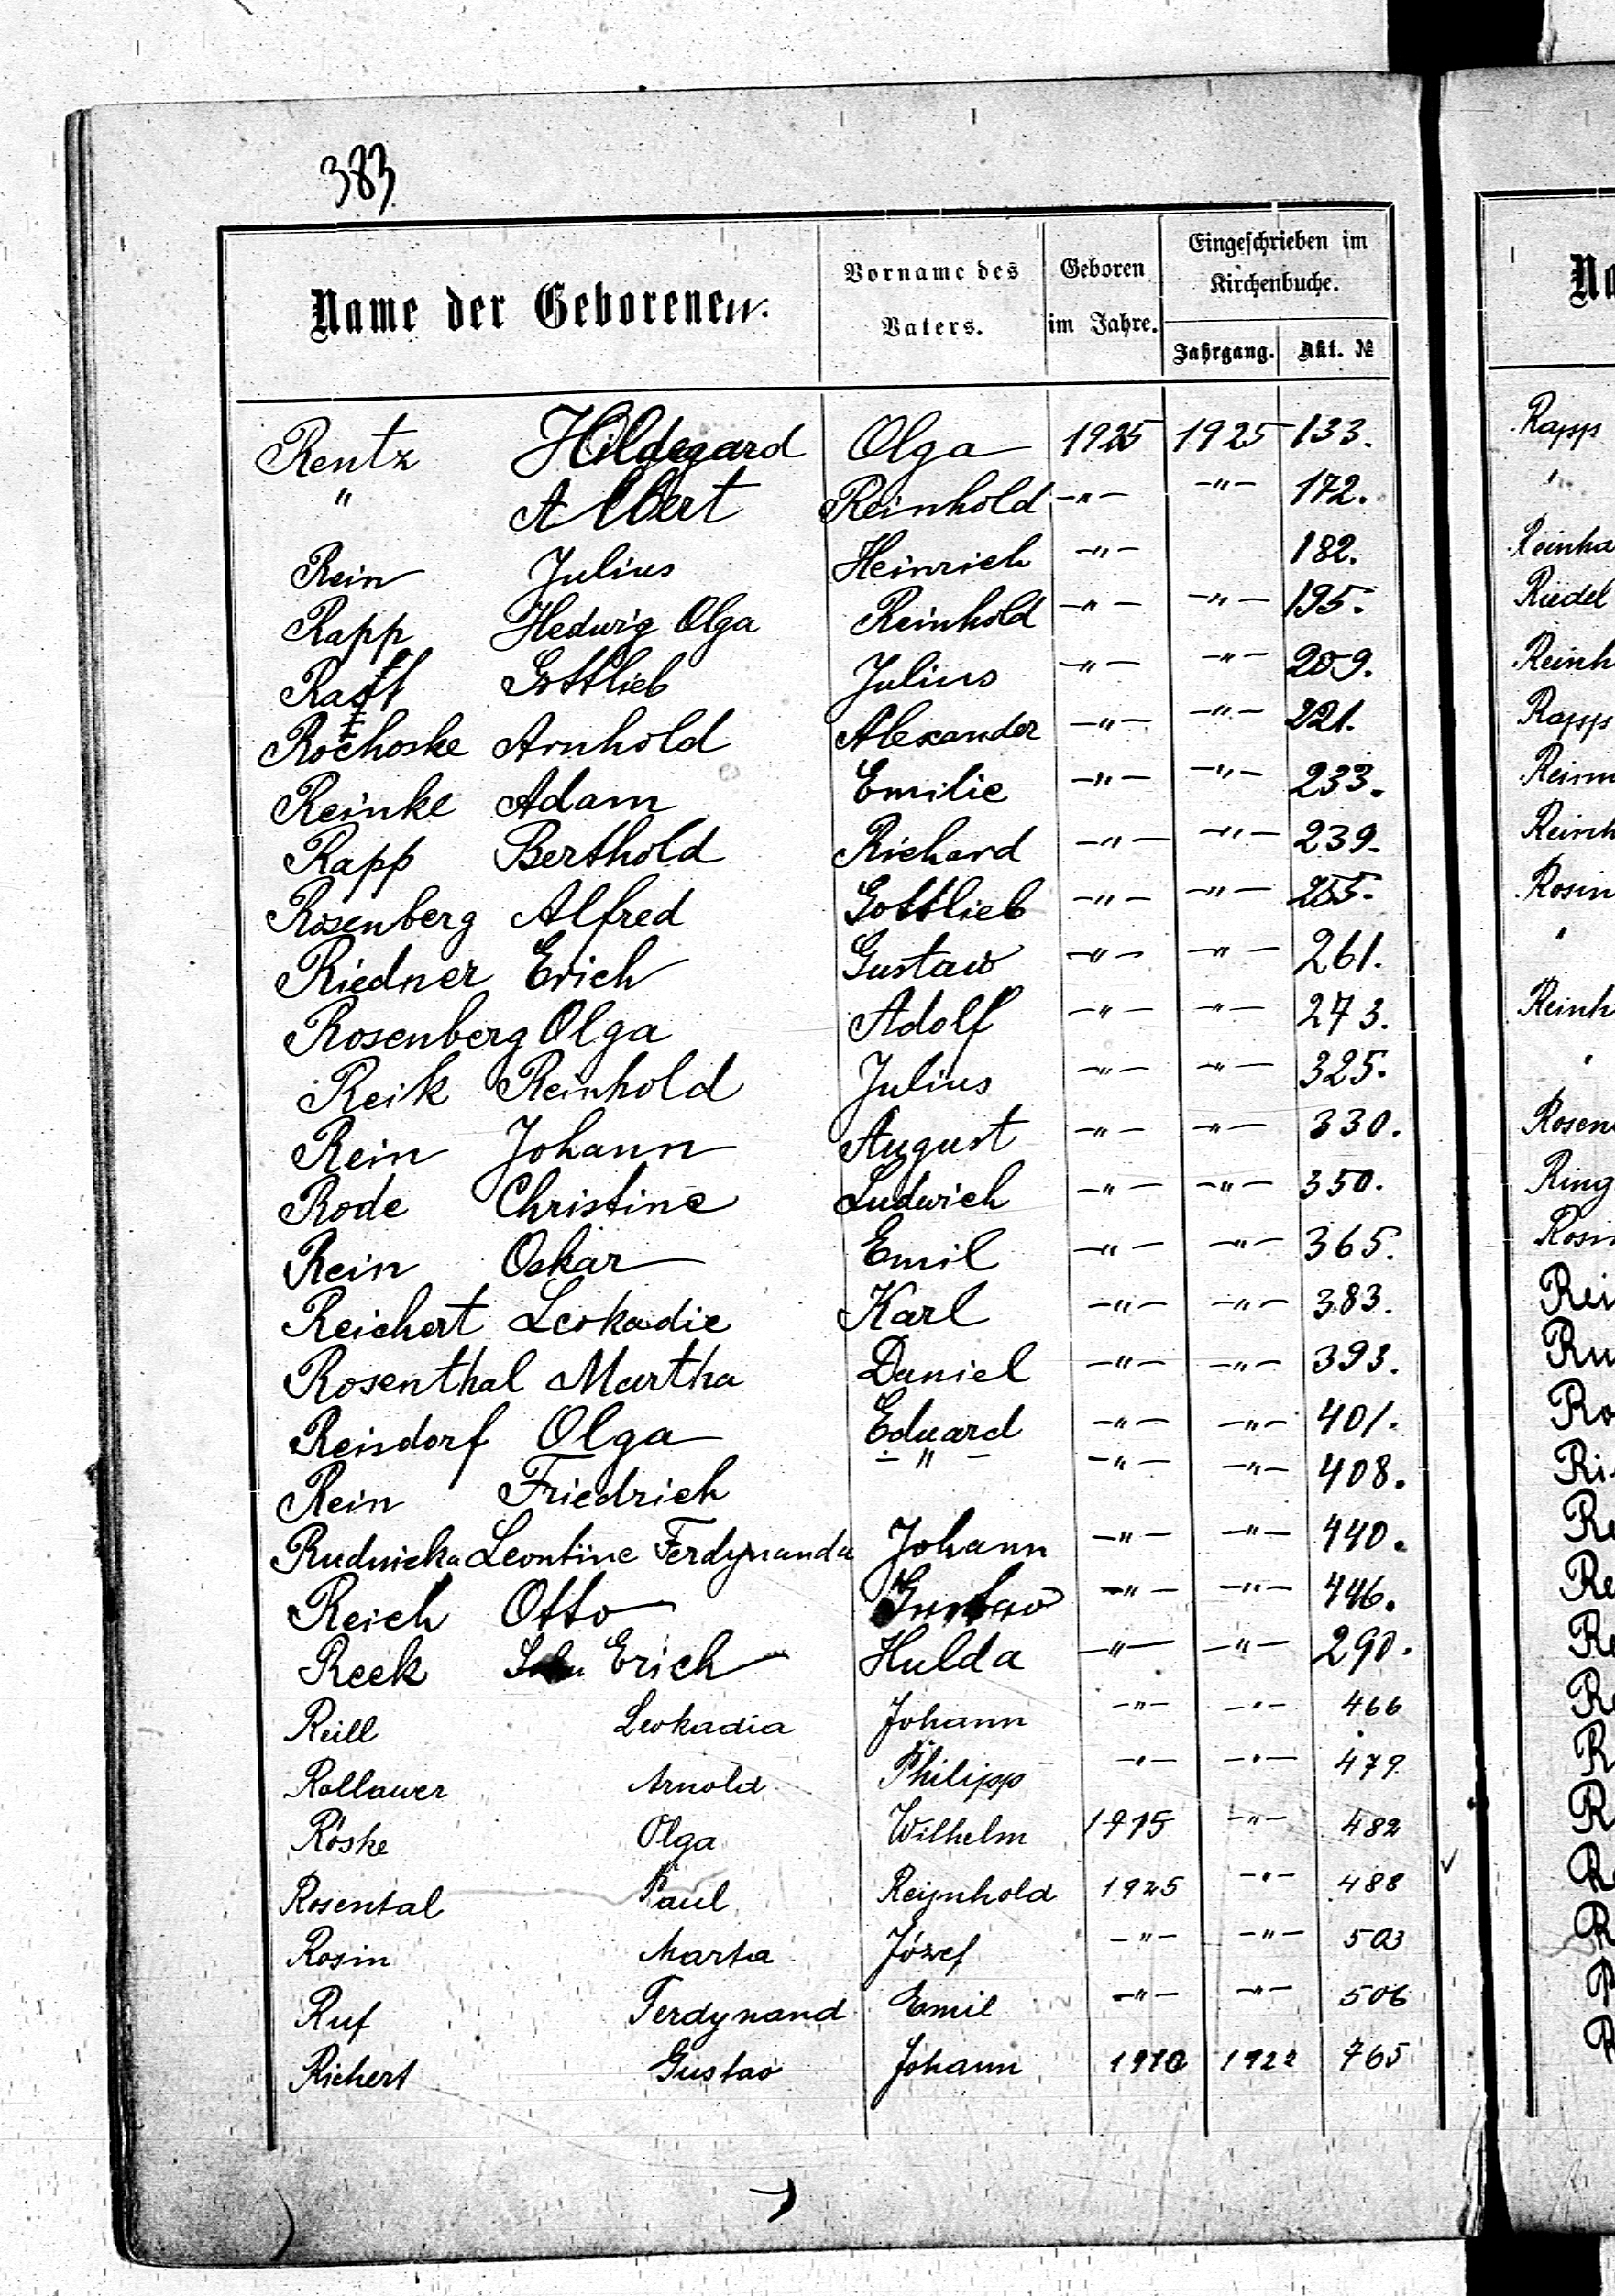 383.
Name der Geborenen. Vorname des Vaters. Geboren im Jahre. Eingeschrieben im Kirchenbuche.
Jahrgang. Akt. №
Rentz Hildegard Olga 1925 1925 133.
" Albert Reinhold -"- -"- 172.
Rein Julius Heinrich -"- 182.
Rapp Hedwig Olga Reinhold -"- -"- 195.
Gottlieb Julius -"- -"- 209.
Rochoske Arnhold Alexander -"- -"- 221.
Reinke Adam Emilie -"- -"- 233.
Rapp Berthold Richard -"- -"- 239.
Rosenberg Alfred Gottlieb -"- -"- 255.
Riedner Erich Gustaw -"- -"- 261.
Rosenberg Olga Adolf -"- -"- 273.
Reik Reinhold Julius -"- -"- 325.
Rein Johann August -"- -"- 330.
Rode Christine Ludwich -"- -"- 350.
Rein Oskar Emil -"- -"- 365.
Reichert Leokadie Karl -"- -"- 383.
Rosenthal Martha Daniel -"- -"- 393.
Reisdorf Olga Eduard -"- -"- 401.
Rein Friedrich -"- -"- -"- 408.
Rudnicka Leontine Ferdynanda Johann -"- -"- 440.
Reich Otto Gustav -"- -"- 446.
Reek Erich Hulda -"- -"- 290.
Reill Leokadia Johann -"- -"- 466
Rollawer Arnold Philipp -"- -"- 479
Röske Olga Wilhelm 1915 -"- 482
Rosental Paul Reynhold 1925 -"- 488
Rosin Marta Józef -"- -"- 503
Ruf Ferdynand Emil -"- -"- 506
Richert Gustav Johann 1910 1922 765
Rapp
"
Riedel
Rapp
Rosin
"
"